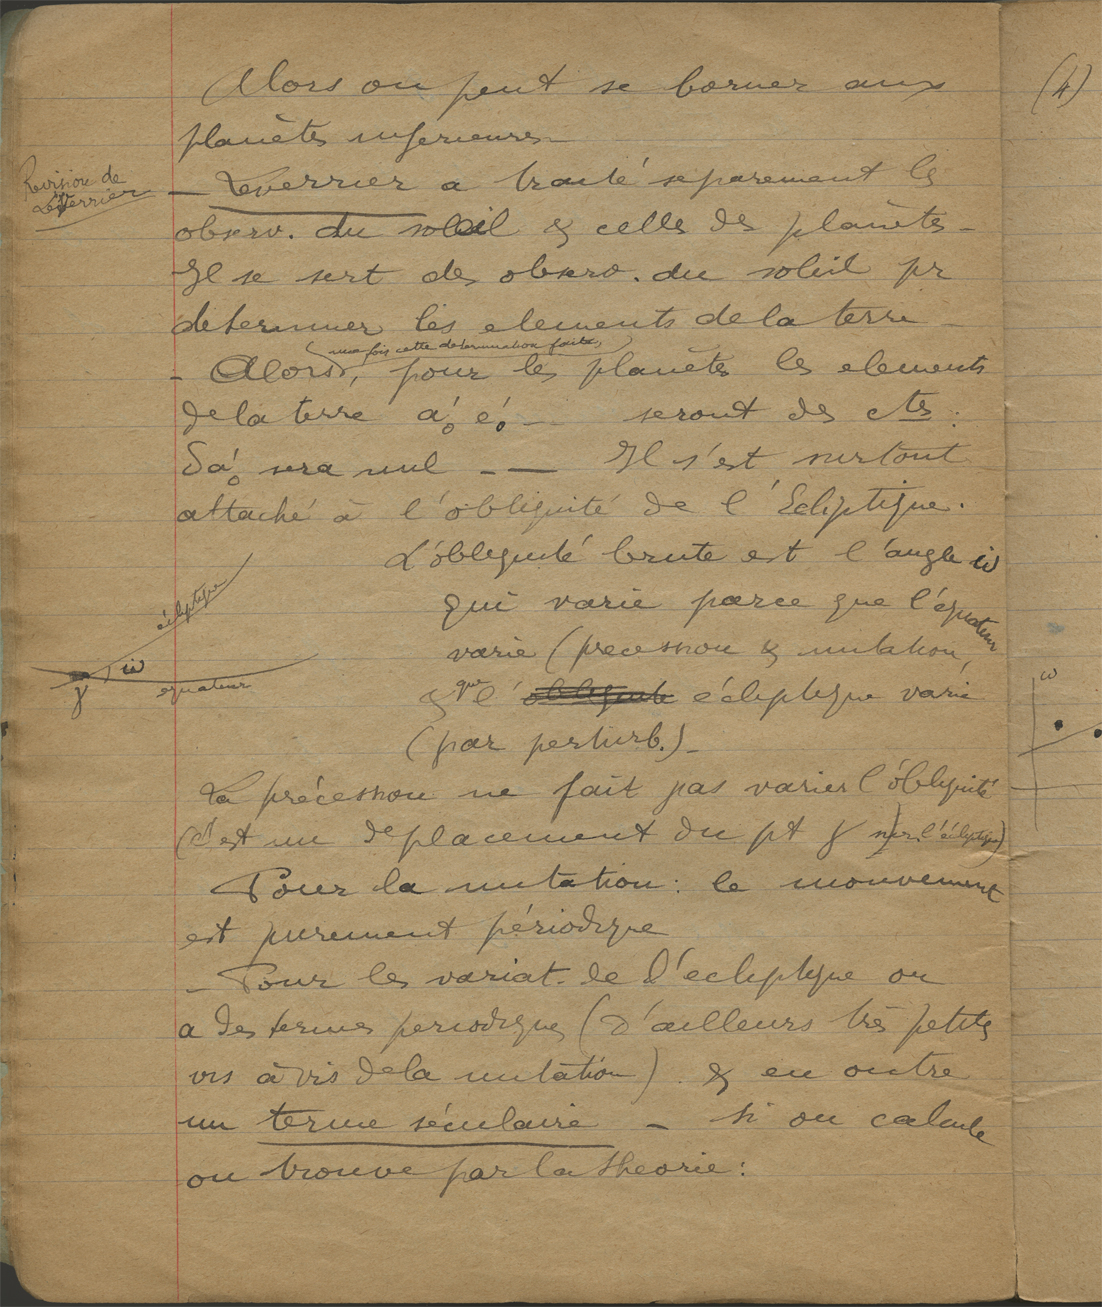 Alors on peut se borner aux
(4)
planètes inferieures —
Revision de
Leverrier
— Leverrier a traité separement les
observ. du soleil & celles des planètes —
Il se sert des observ. du soleil pr
determiner les elements de la terre —
(une fois cette determination faite,)
- Alors, pour les planètes les elements
de la terre a'₀ é'₀ — seront des ctes.
δa'₀ sera nul - — Il s'est surtout
attaché à l'obliquité de l'Ecliptique.
L'obliquité brute est l'angle ω
qui varie parce que l'équateur
varie (precession & nutation,
& que l' obliquité écliptique varie
(par perturb.) —
écliptique
ω
equateur
γ
ω
La précession ne fait pas varier l'obliquité
(C'est un deplacement du pt γ sur l'écliptique)
Pour la nutation : le mouvement
est purement périodique
— Pour les variat. de l'ecliptique on
a des termes periodiques (d'ailleurs très petits
vis à vis de la nutation) & en outre
un terme séculaire — Si on calcule
on trouve par la theorie :